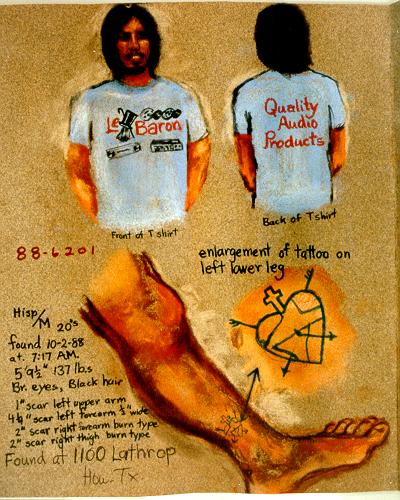 Le Baron
Quality
Audio
Products
Front of Tshirt
Back of Tshirt
88-6201
enlargement of tattoo on
left lower leg
Hisp/M 20's
found 10-2-88
at 7:17 AM.
5' 9½" 137 lbs.
Br. eyes, Black hair
1" scar left upper arm
4½" scar left forearm ½" wide
2" scar right forearm burn type
2" scar right thigh burn type
Found at 1100 Lathrop
Hou. Tx.